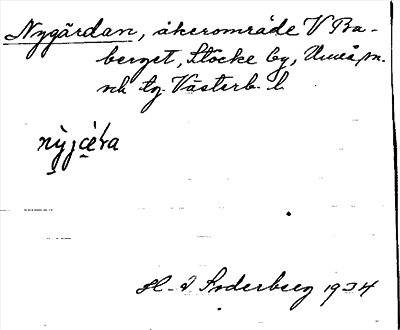 Nygårdan, åkerområde V Ba-
berget, Stöcke by, Umeå sn.
och tg. Västerb. l.
H. Söderberg 1934